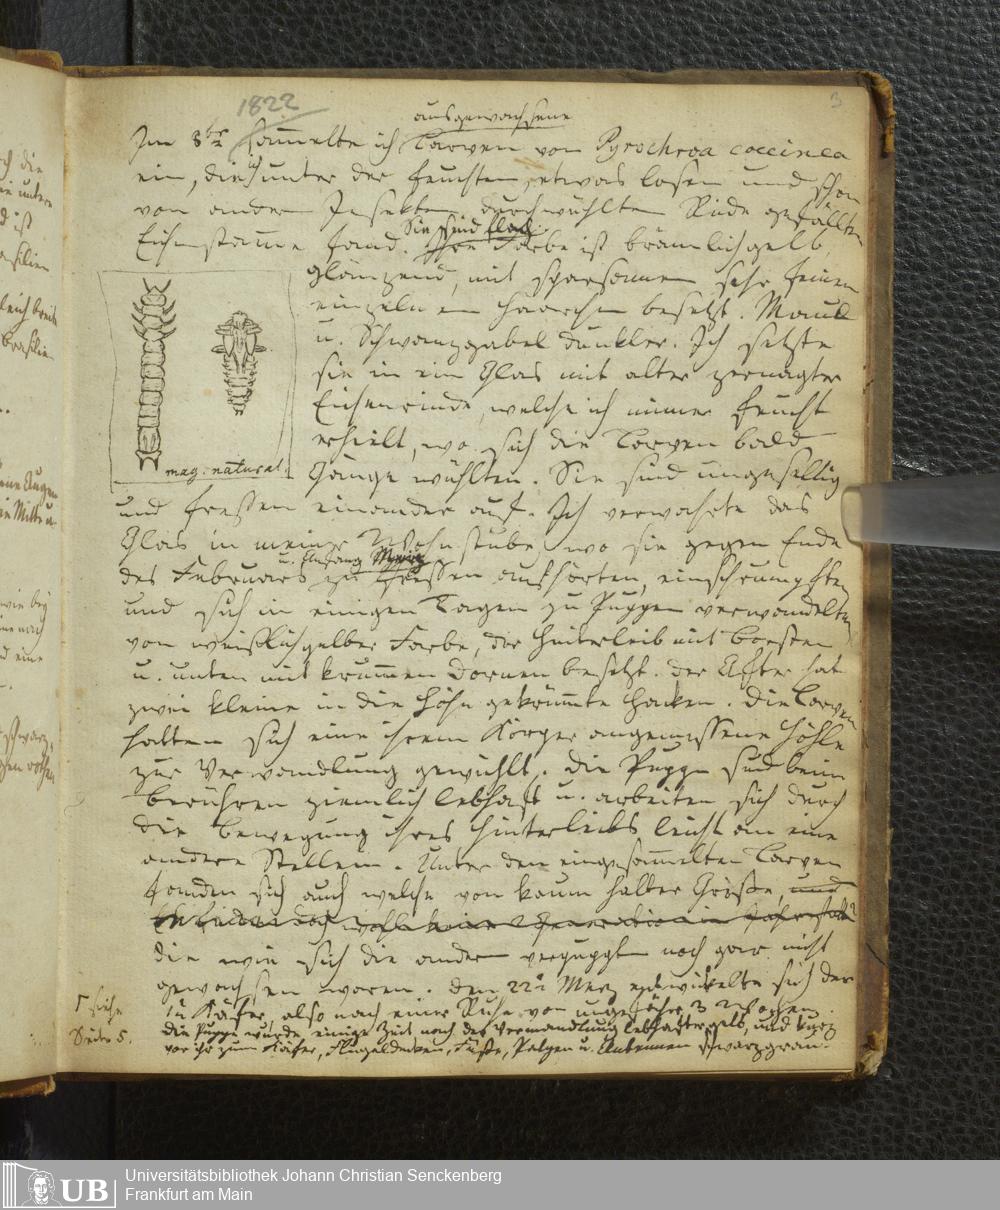 1822
3
ausgewachsene
Im 8br sammelte ich Larven von Pyrochroa coccinea
ein, die ich unter der feuchten, etwas losen und schon
von andern Insekten durchwühlten Rinde gefällter
Sie sind flach.
Eichenstämme fand. Ihre Farbe ist bräunlichgelb,
glänzend, mit sparsamen sehr feinen
einzelnen Haarchen besetzt. Maul
u. Schwanzgabel dunkler. Ich setzte
sie in ein Glas mit alter zernagter
Eichenrinde, welche ich immer feucht
erhielt, wo sich die Larven bald
mag: natural.
Gänge wühlten. Sie sind ungesellig
und fressen einander auf. Ich verwahrte das
Glas in meiner Wohnstube, wo sie gegen Ende
u. Anfang Merz
des Februars zu fressen aufhörten, einschrumpften
und sich in einigen Tagen zu Puppen verwandelten
von weißlichgelber Farbe, der Hinterleib mit Borsten
u. unten mit krummen Dornen besetzt. Der After hat
zwei kleine in die Höhe gekrümmte Hacken. Die Larven
hatten sich eine ihrem Körper angemessene Höhle
zur Verwandlung gewühlt. Die Puppe sind beim
berühren ziemlich lebhaft u. arbeiten sich durch
die Bewegung ihres Hinterleibs leicht an eine
andere Stellen. Unter den eingesammelten Larven
fanden sich auch welche von kaum halber Größe, und
doch wohl keine 2 Generationen in Jahr
die wie sich die andern verpuppten noch gar nicht
gewachsen waren. Den 22n Merz entwickelte sich der
1te Käfer also nach einer Ruhe von ungefähr 3 Wochen.
Γ siehe
Seite 5.
Die Puppe wurde einige Zeit nach der Verwandlung lebhafter gelb, und kurz
vor ihr zum Käfer, Flügeldecken, Füße, Palpen u. Antennen schwarzgrau.
Universitätsbibliothek Johann Christian Senckenberg
Frankfurt am Main
UB